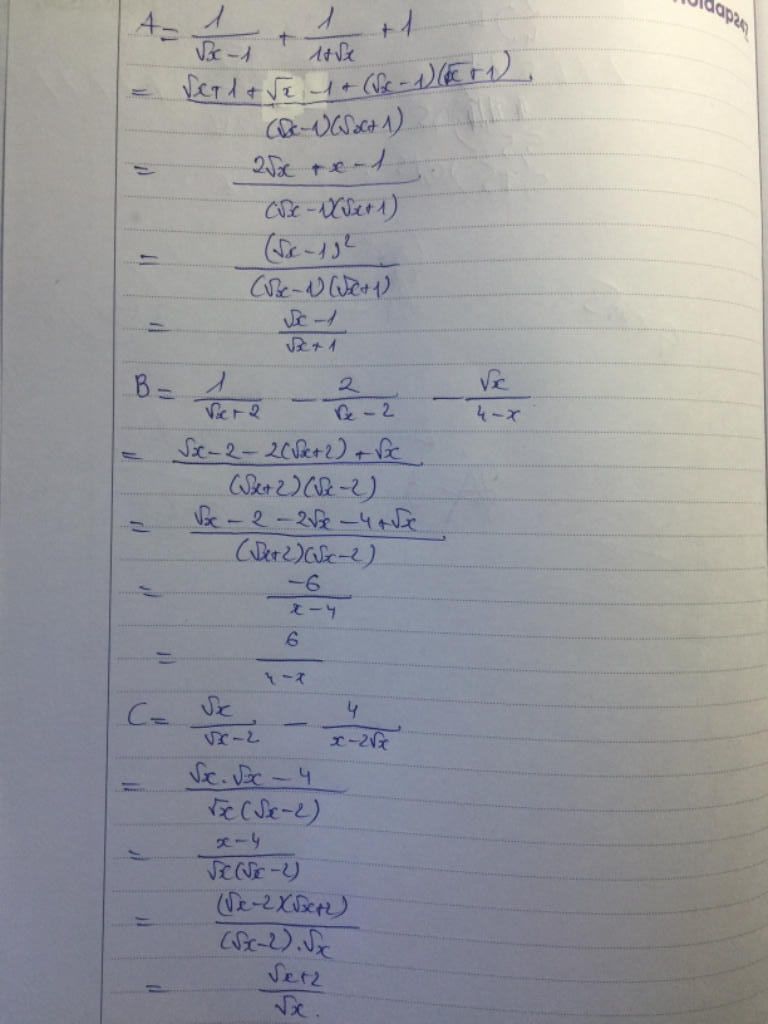 Hoidap247
A = 1/(√x-1) + 1/(1+√x) + 1
= (√x+1+√x-1+(√x-1)(√x+1))/((√x-1)(√x+1))
= (2√x+x-1)/((√x-1)(√x+1))
= (√x-1)²/((√x-1)(√x+1))
= (√x-1)/(√x+1)
B = 1/(√x+2) - 2/(√x-2) - √x/(4-x)
= (√x-2-2(√x+2)+√x)/((√x+2)(√x-2))
= (√x-2-2√x-4+√x)/((√x+2)(√x-2))
= -6/(x-4)
= 6/(4-x)
C = √x/(√x-2) - 4/(x-2√x)
= (√x.√x-4)/(√x(√x-2))
= (x-4)/(√x(√x-2))
= (√x-2)(√x+2)/((√x-2).√x)
= (√x+2)/√x.